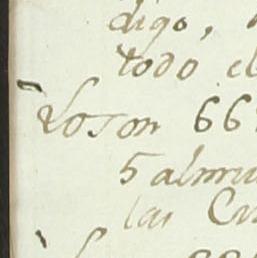 digo,
todo el
Loson 66
5 almu
las Cu